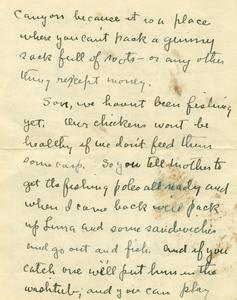 Canyon because it is a place
where you cant pack a gunny
sack full of roots - or any other
thing except money.
Son, we havent been fishing
yet. Our chickens wont be
healthy if we dont feed them
some carp. So you tell mother to
get the fishing poles all ready and
when I come back we'll pack
up and some sandwiches
and go out and fish. And if you
catch one we'll put him in the
washtub, and you can play